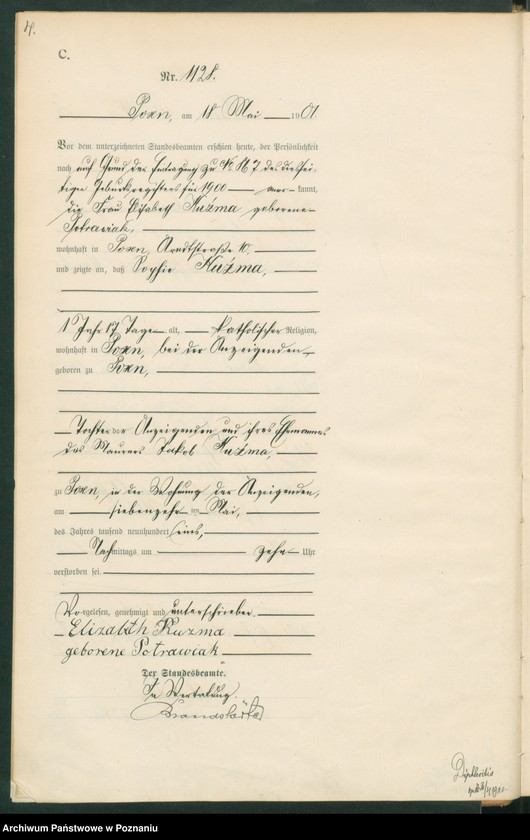 C.
Nr. 1128.
Posen, am 18 Mai 1901.
Vor dem unterzeichneten Standesbeamten erschien heute, der Persönlichkeit
nach auf Grund der Eintragung zu No 867 des diessei-
tigen Geburtsregisters für 1900 aner- kannt,
die Frau Elisabeth Kuźma geborene
Potrawiak,
wohnhaft in Posen, Arndtstraße 10,
und zeigte an, daß Sophie Kuźma,
1 Jahr 17 Tage alt, katholischer Religion,
wohnhaft in Posen, bei der Anzeigenden
geboren zu Posen,
Tochter der Anzeigenden und ihres Ehemannes
des Maurers Jakob Kuźma,
zu Posen, in der Wohnung der Anzeigenden,
am siebenzehnten Mai,
des Jahres tausend neunhundert eins,
Nachmittags um zehn Uhr
verstorben sei.
Vorgelesen, genehmigt und unterschrieben
Elizabeth Kuzma
geborene Potrawiak
Der Standesbeamte.
In Vertretung.
Diphtheritis
Archiwum Państwowe w Poznaniu